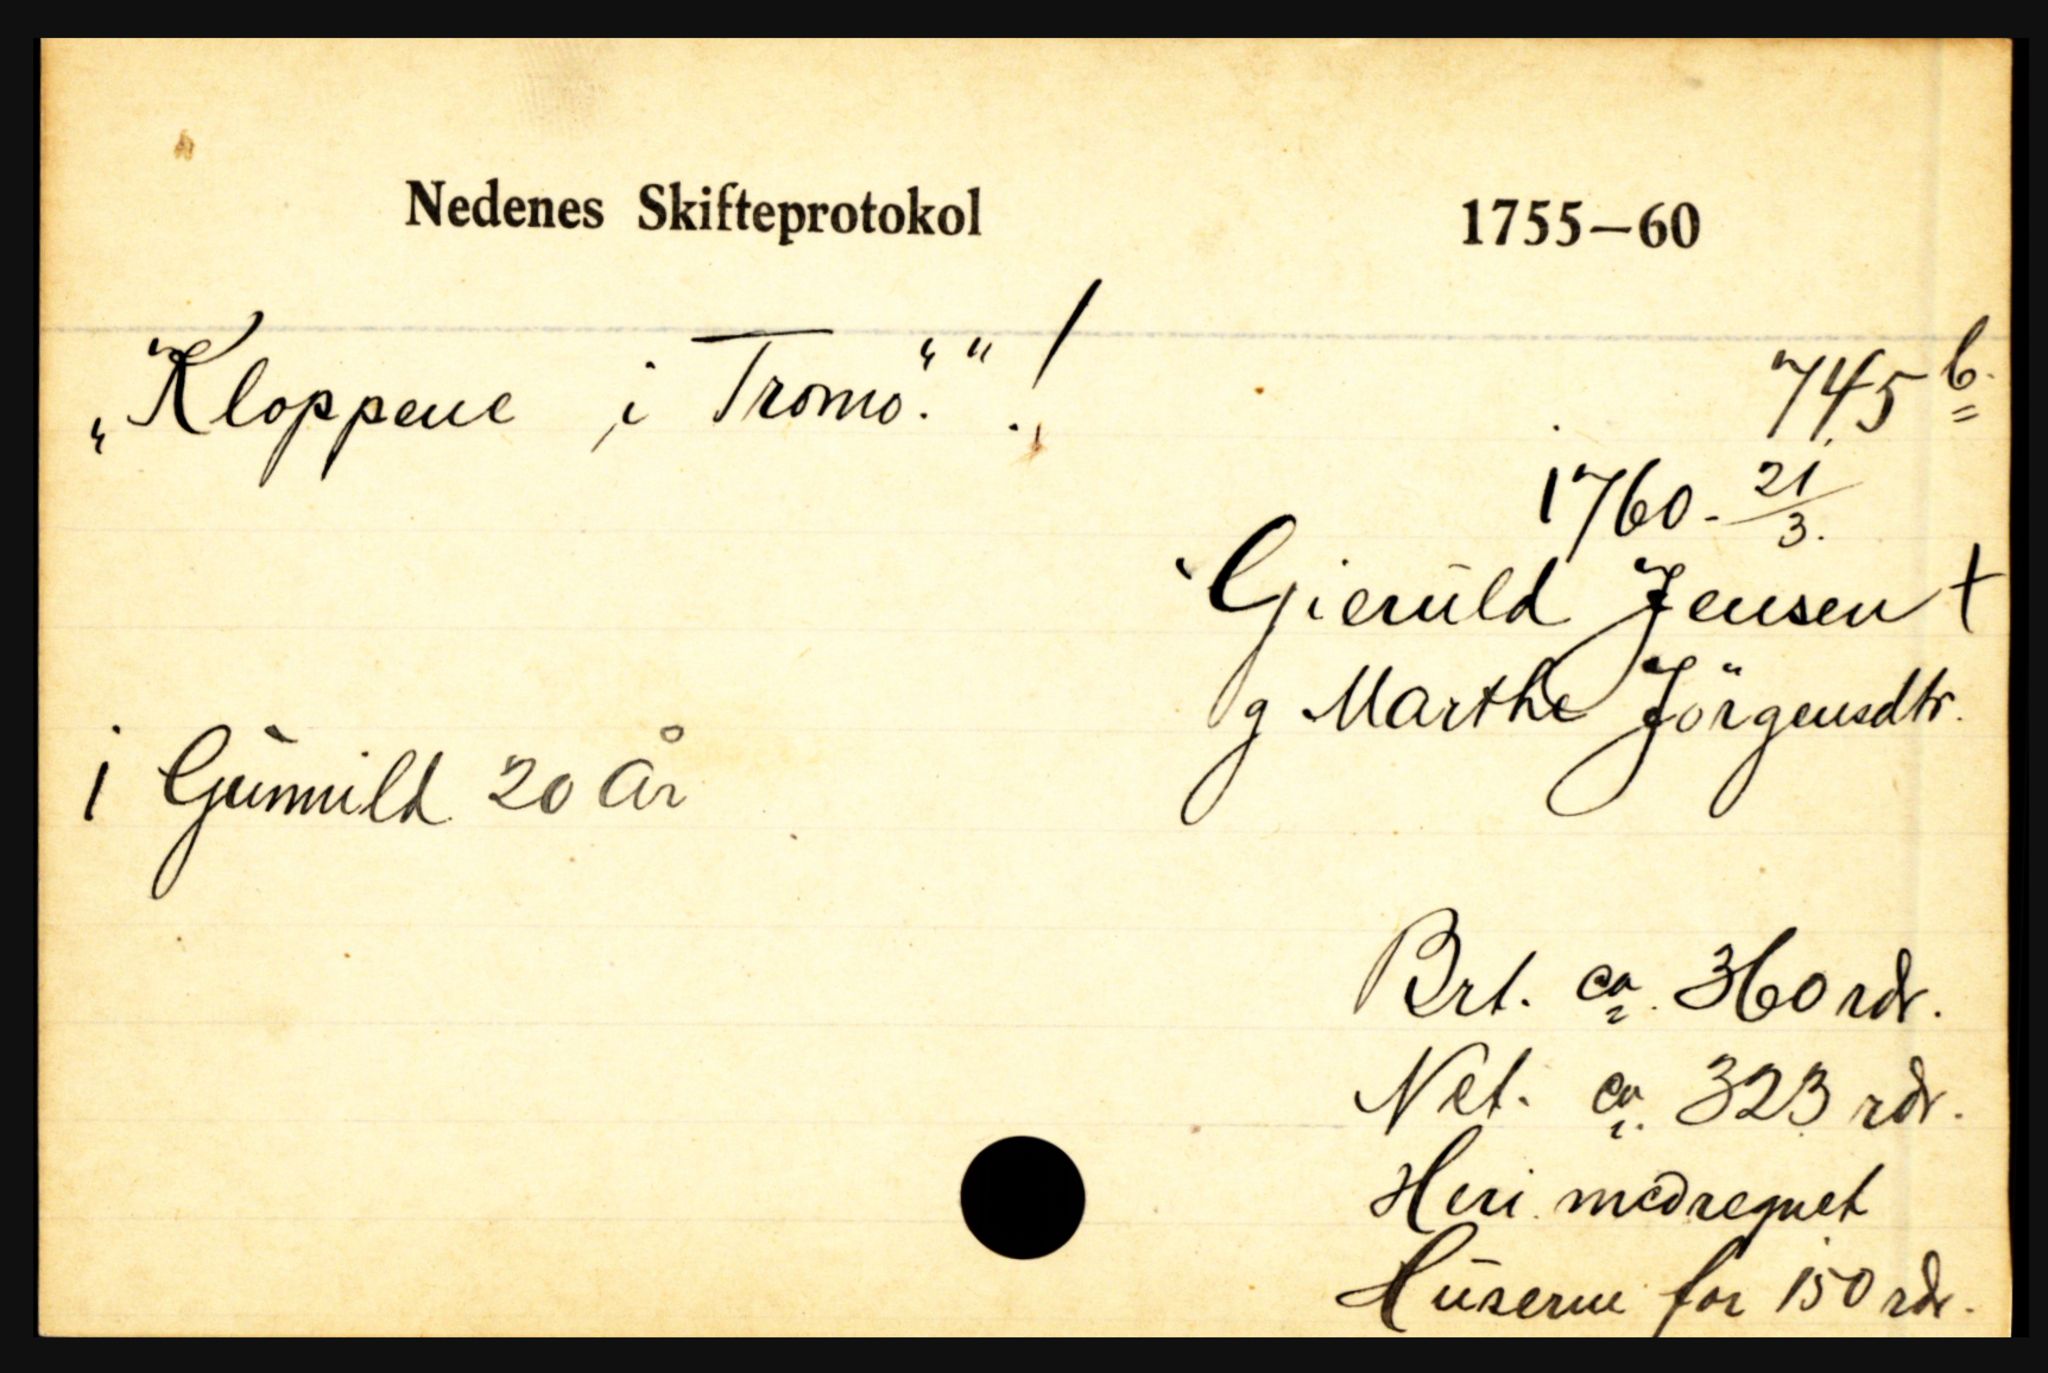 Nedenes Skifteprotokol 1755–60
„Kloppene i Tromö." !
745 b.
1760. 21/3.
Gierüld Jensen +
g Marthe Jörgensdtr.
1 Günnild 20 År
Brt. ca. 360 rdr.
Net. ca. 323 rdr.
Heri medregnet
Hüserne for 150 rdr.